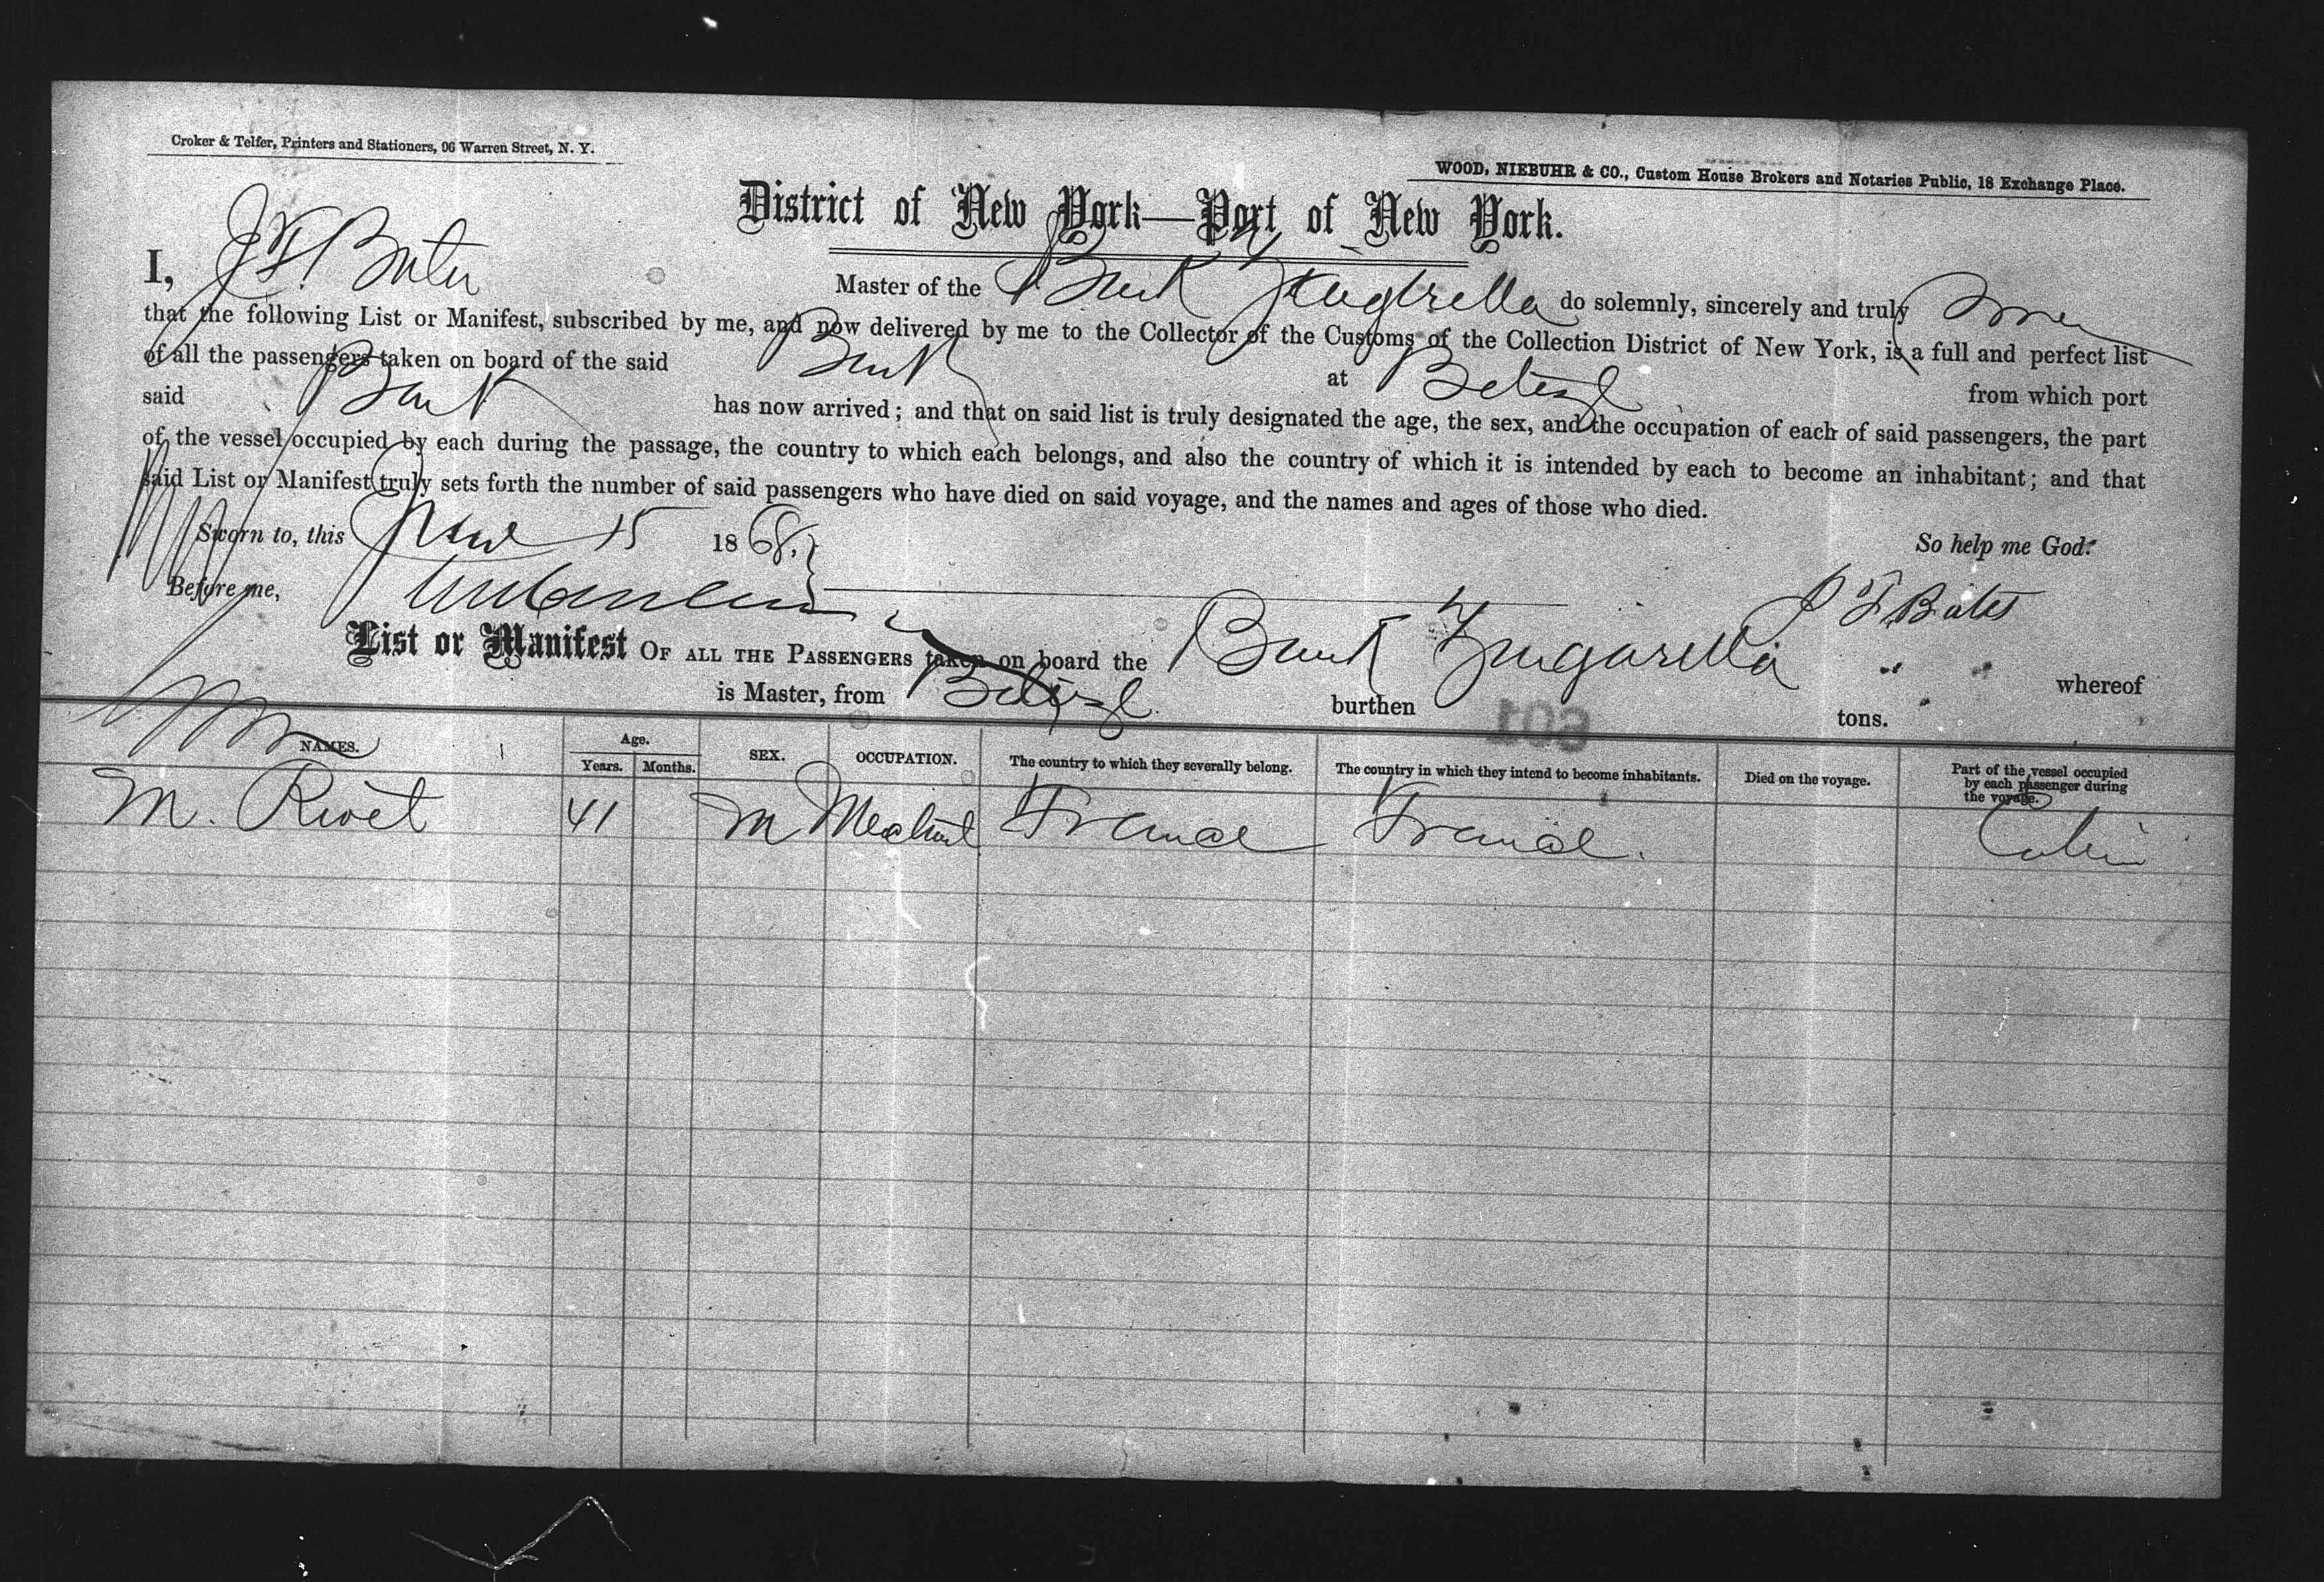 Croker & Telfer, Printers and Stationers, 96 Warren Street, N. Y.
WOOD, NIEBUHR & CO., Custom House Brokers and Notaries Public, 18 Exchange Place.
District of New York—Port of New York.
I, J F Bates Master of the Bark do solemnly, sincerely and truly
that the following List or Manifest, subscribed by me, and now delivered by me to the Collector of the Customs of the Collection District of New York, is a full and perfect list
of all the passengers taken on board of the said Bark at Belize from which port
said Bark has now arrived; and that on said list is truly designated the age, the sex, and the occupation of each of said passengers, the part
of the vessel occupied by each during the passage, the country to which each belongs, and also the country of which it is intended by each to become an inhabitant; and that
said List or Manifest truly sets forth the number of said passengers who have died on said voyage, and the names and ages of those who died.
Sworn to, this 15 1868. So help me God.
Before me, J F Bates
List or Manifest OF ALL THE PASSENGERS taken on board the Bark Zingarella whereof
is Master, from Belize burthen tons.
601
NAMES. Age. Years. Months. SEX. OCCUPATION. The country to which they severally belong. The country in which they intend to become inhabitants. Died on the voyage. Part of the vessel occupied by each passenger during the voyage.
M. Rivet 41 M France France. Cabin